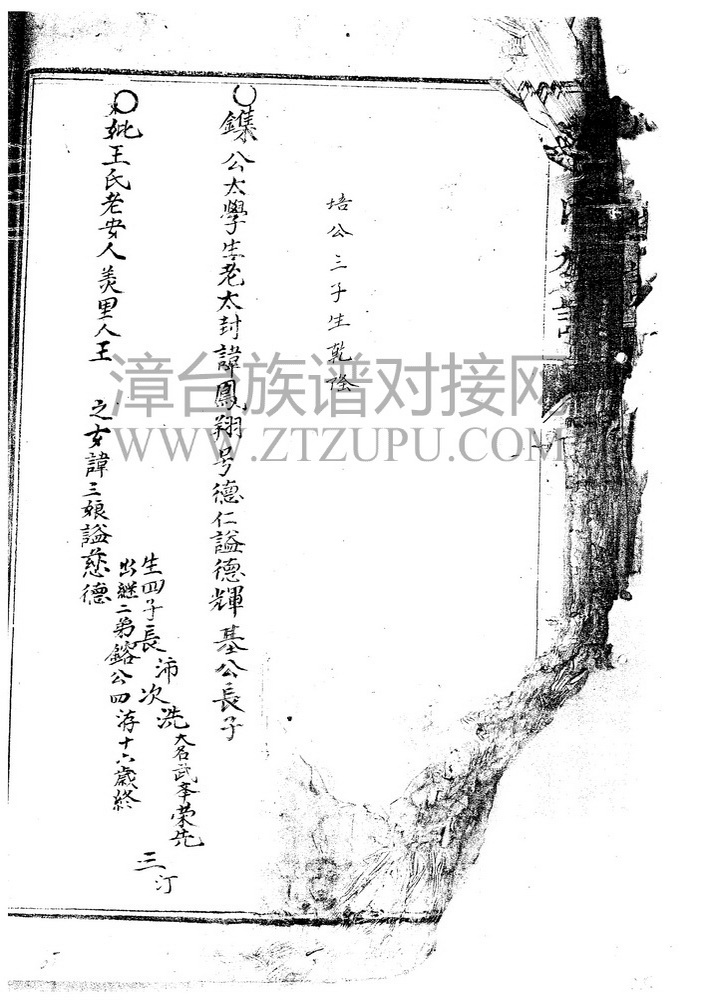 培公三子生乾
○鏶公太學生老太封諱鳳翔号德仁謚德輝基公長子
○妣王氏老安人美里人王 之女諱三娘謚慈德
生四子長沛次洗大名武舉荣先三汀
出継二弟鎔公四游十六歲終
漳台族谱对接网
WWW.ZTZUPU.COM